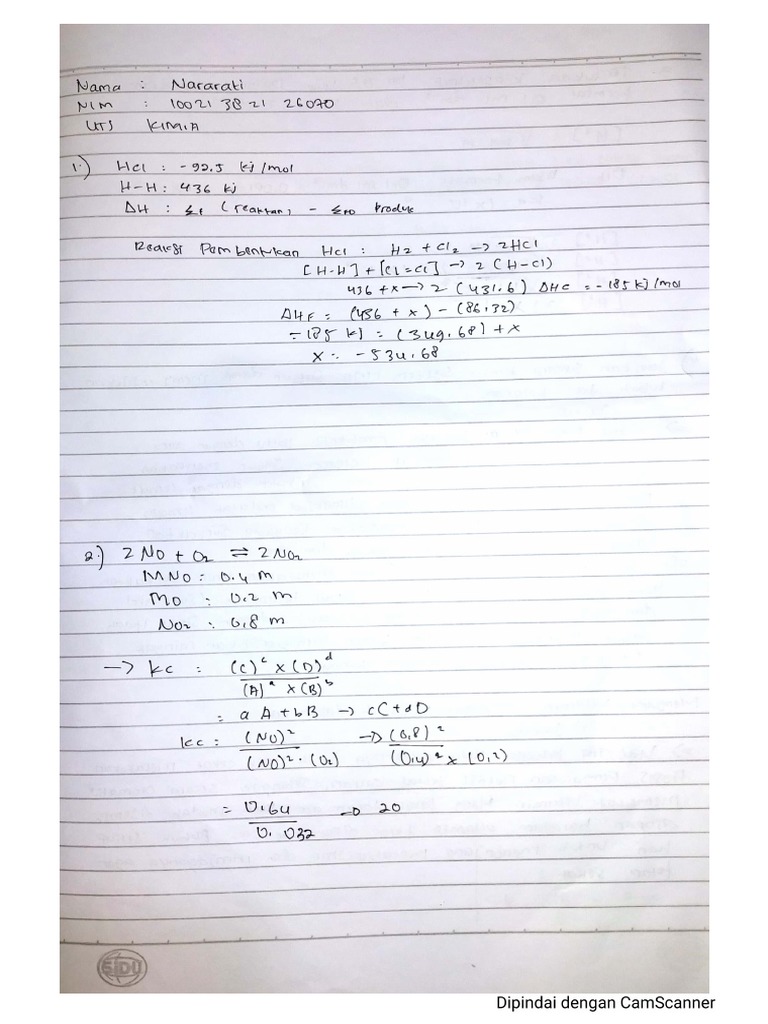 Nama : Nararati
NIM : 10021 38 21 26070
UTS KIMIA
1.) HCl : -92.5 kj/mol
H-H : 436 kj
ΔH : (reaktan) - Produk
Reaksi Pembentukan HCl : H2 + Cl2 → 2HCl
[H-H] + [Cl=Cl] → 2 (H-Cl)
436 + x → 2 (431.6) ΔHC = -185 kj/mol
ΔHF = (436 + x) - (86,32)
= -185 kj = (349.68) + x
x = -534.68
2.) 2 NO + O2 ⇌ 2 NO2
MNO : 0.4 m
MO : 0.2 m
NO2 : 0,8 m
→ kc : (C)^c x (D)^d
(A)^a x (B)^b
= a A + b B → cC + dD
kc : (NO)^2 → (0,8)^2
(NO)^2 . (O2) (0,4)^2 x (0,2)
= 0.64 → 20
0.032
SIDU
Dipindai dengan CamScanner